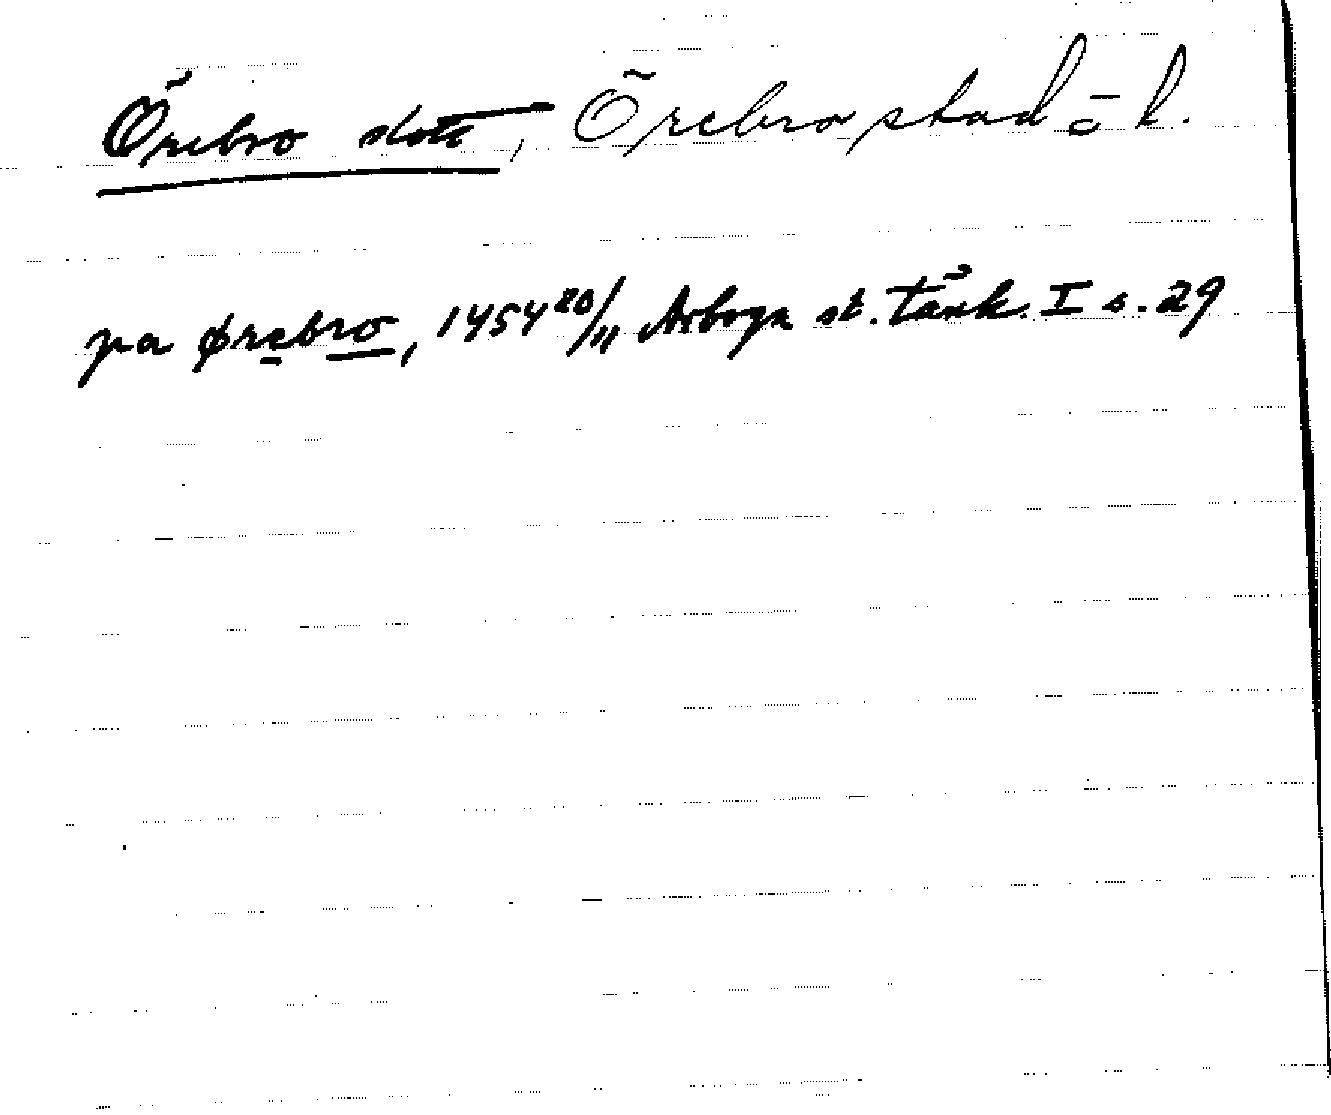 Örebro slott, Örebro stad o l.
pa Ørebro, 1454 20/11 Arboga st. tänk. I s. 29